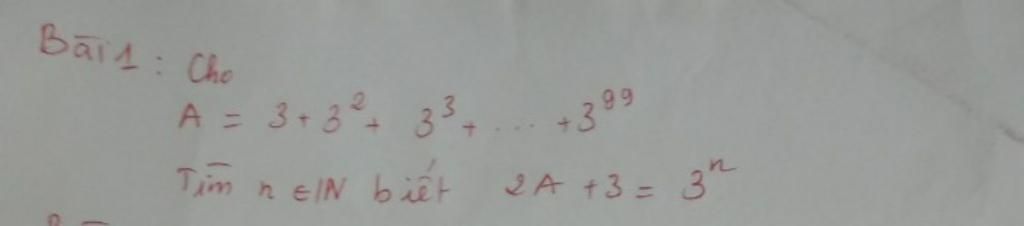 Bài 1: Cho
A = 3 + 3² + 3³ + ... + 3⁹⁹
Tìm n ∈ IN biết 2A + 3 = 3ⁿ